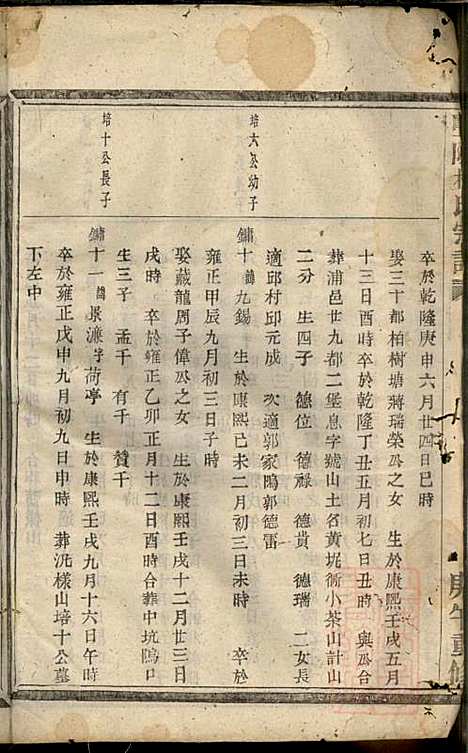 卒於乾隆庚申六月廿四日巳時
娶三十都柏樹塘蔣瑞榮公之女 生於康熙壬戌五月
十三日酉時卒於乾隆丁丑五月初七日丑時 與公合
葬浦邑廿九都二堡息字號山土名黄坭衕小茶山計山
二分 生四子 德位 德祿 德貴 德瑞 二女長
適邱村邱元成 次適郭家隖郭德雷
培六公幼子
鏽十 諱九錫 生於康熙己未二月初三日未時 卒於
雍正甲辰九月初三日子時
娶藏龍周子偉公之女 生於康熙壬戌十二月廿三日
戌時 卒於雍正乙卯正月十二日酉時合葬中坑隖口
生三子 孟千 有千 贊千
培十公長子
鏽十一 諱景濂字荷亭 生於康熙壬戌九月十六日午時
卒於雍正戊申九月初九日申時 葬洗樣山培十公墓
下左中
氏宗譜
庚午重修